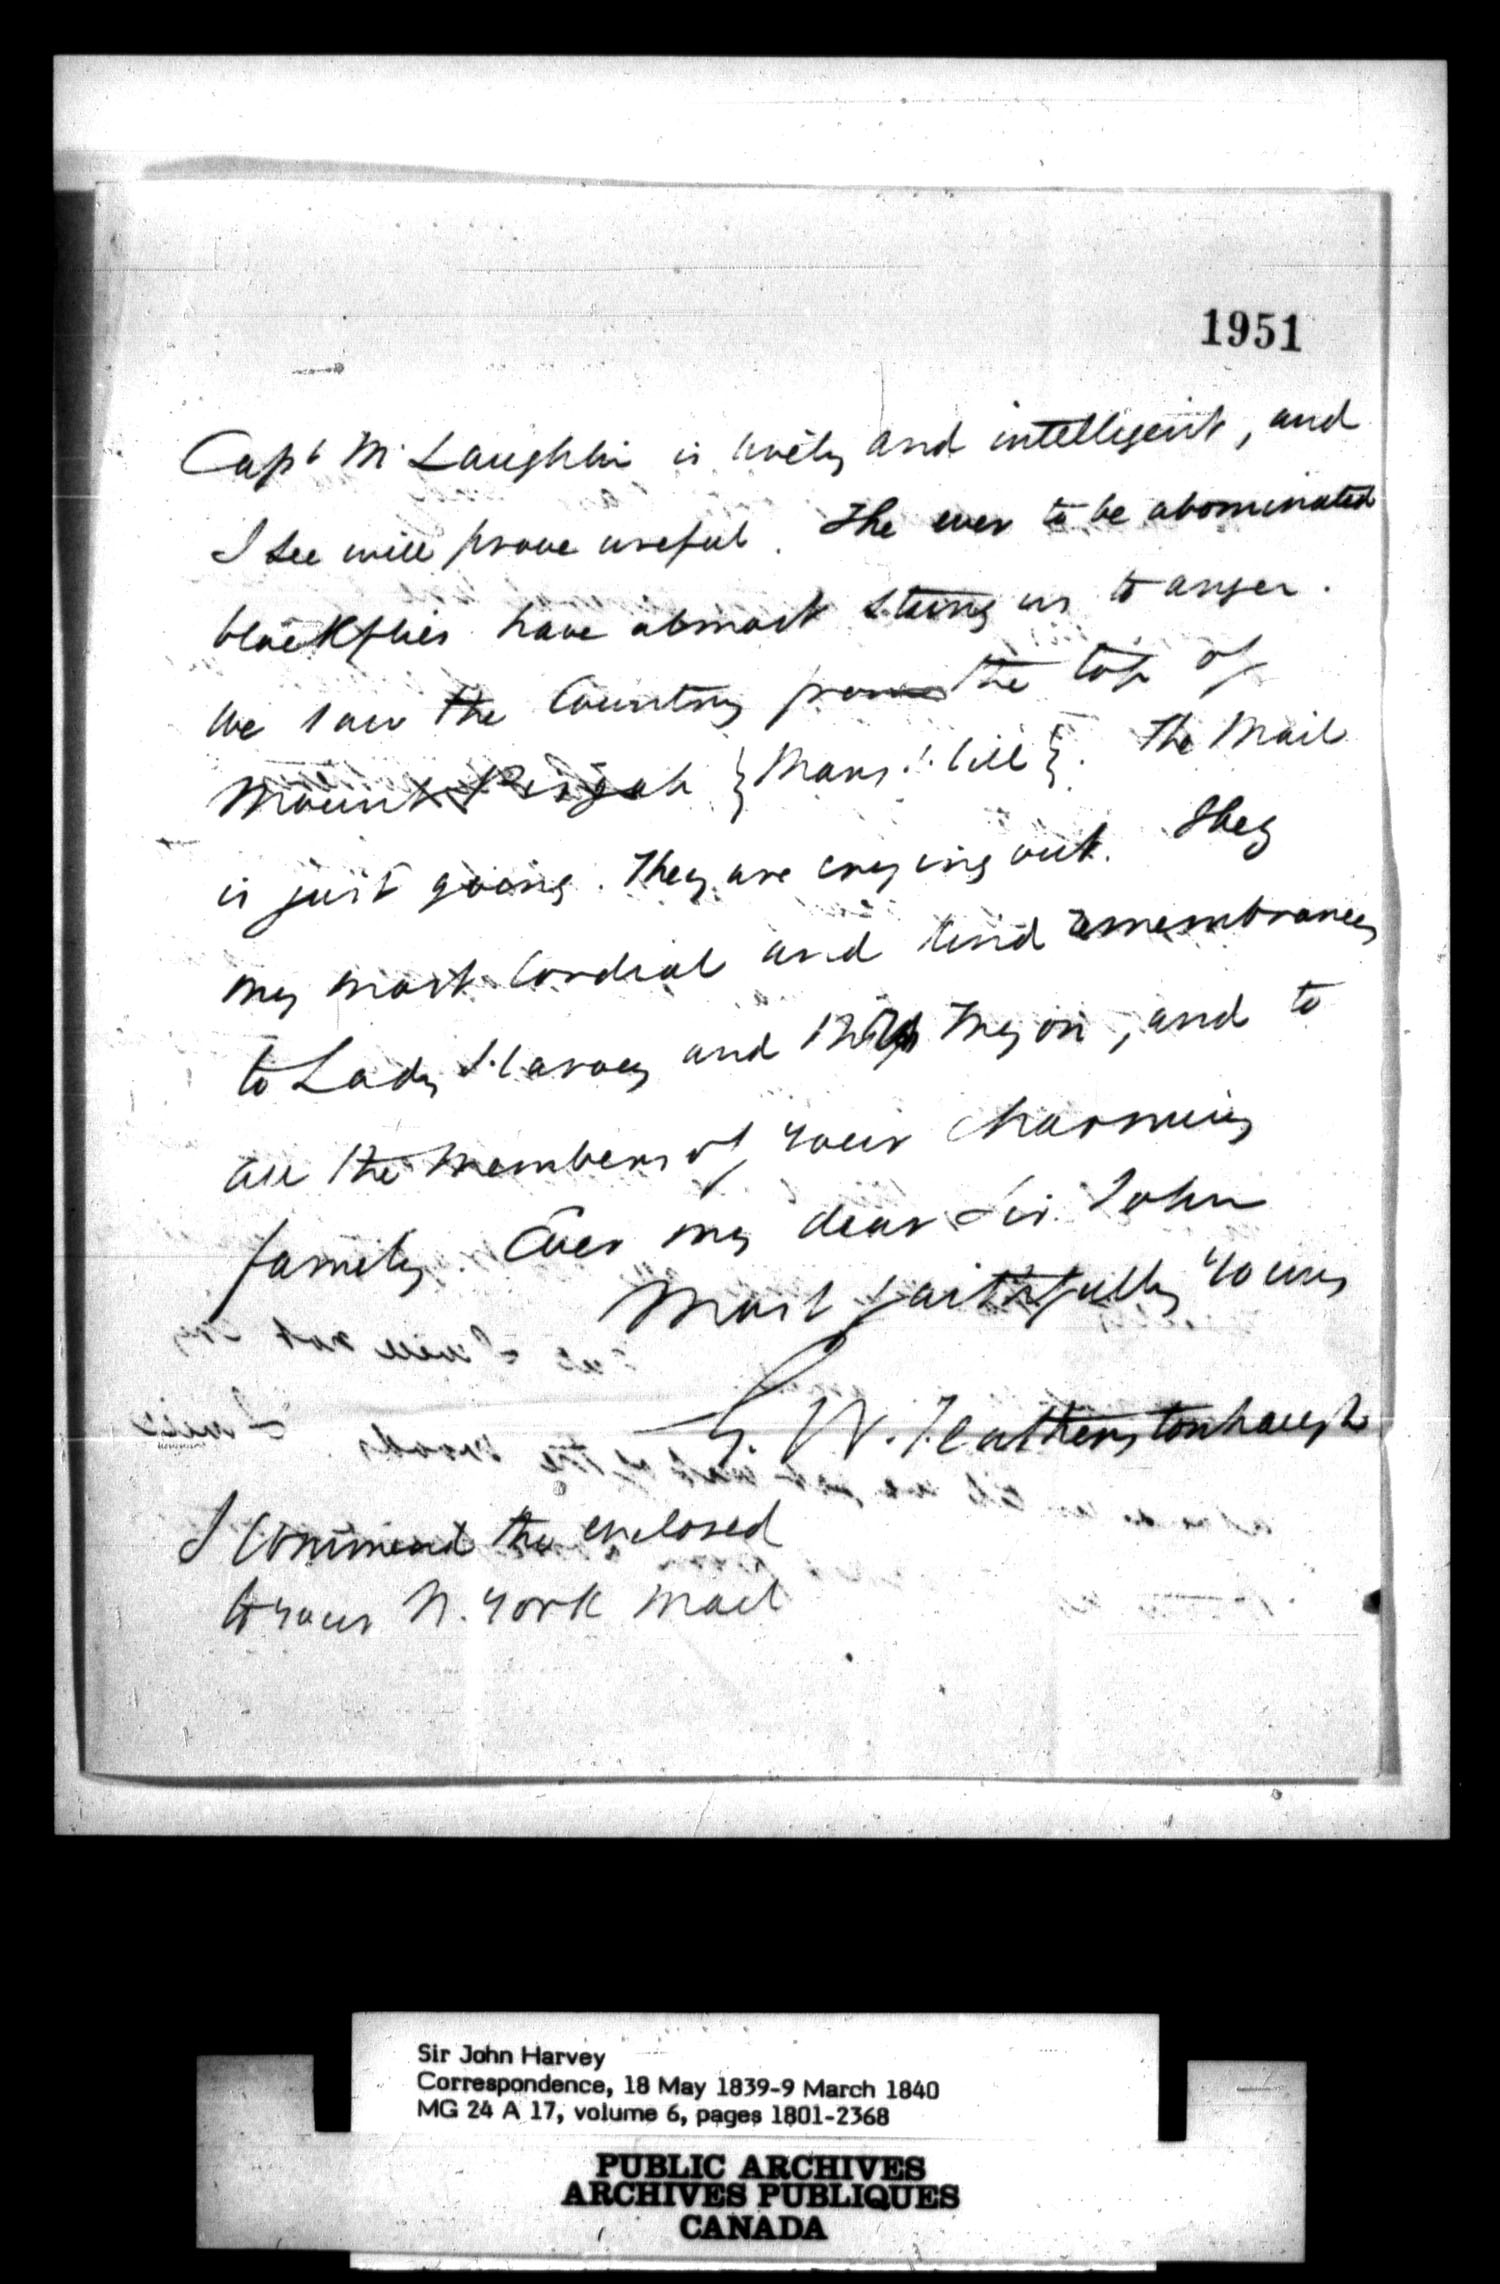 1951
Capt McLaughlin is lively and intelligent, and
I see will prove useful. The ever to be abominated
blackflies have almost stung us to anger.
We saw the Country from the top of
Mount Pisgah {Mars Hill}. The Mail
is just going. They are crying out. They
my most cordial and kind remembrances
to Lady Harvey and Tryon, and to
all the members of your charming
family. Ever my dear Sir John
Most faithfully yours
G. W. Featherstonhaugh
I commend the enclosed
to your N. York mail
Sir John Harvey
Correspondence, 18 May 1839-9 March 1840
MG 24 A 17, volume 6, pages 1801-2368
PUBLIC ARCHIVES
ARCHIVES PUBLIQUES
CANADA